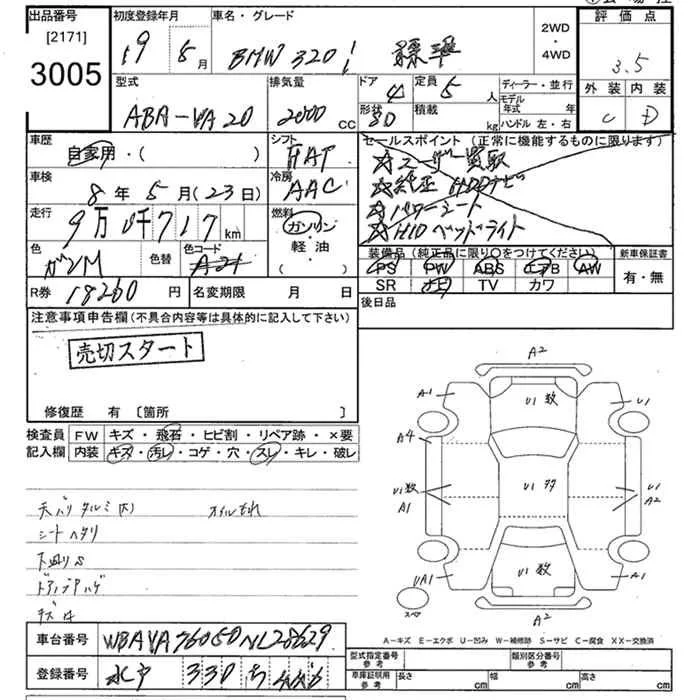 出品番号 初度登録年月 車名・グレード 評価点
[2171]
3005
19 年 5 月 BMW 320i 標準
2WD
・
4WD
3.5
型式 排気量 ドア 定員 ディーラー・並行 外装 内装
ABA-VA20 2000 CC 4 5 人 モデル年式 年 C D
形状 積載 kg ハンドル 左・右
5D
車歴 シフト セールスポイント (正常に機能するものに限ります)
自家用・( ) FAT ☆ユーザー買取
車検 冷房 ☆純正HDDナビ
8年 5月(23日) AAC ☆パワーシート
走行 燃料 ☆HIDヘッドライト
9万0千717km ガソリン
軽油・
( ・ )
色 色替 色コード
ガンM A21
装備品 (純正品に限り○をつけてください) 新車保証書
PS PW ABS エアB AW 有・無
SR ナビ TV カワ
R券 18260 円 名変期限 月 日 後日品
注意事項申告欄(不具合内容等は具体的に記入して下さい)
売切スタート
修復歴 有 〔箇所 〕
検査員 FW キズ・飛石・ヒビ割・リペア跡・×要
記入欄 内装 キズ・汚レ・コゲ・穴・スレ・キレ・破レ
天バリタルミ(大) オイルもれ
シートヘタリ
下廻りS
A2
A1 U1数 U1
A4
U1数 U1多 U1
A1 A2
UA1 U1数 A1
スペア A2
A-キズ E-エクボ U-凹み W-補修跡 S-サビ C-腐食 XX-交換済
車台番号 WBAVA76050NL28629
登録番号 水戸 330 ち
型式指定番号 参考 類別区分番号 参考
車庫証明用 参考 長さ cm 幅 cm 高さ cm